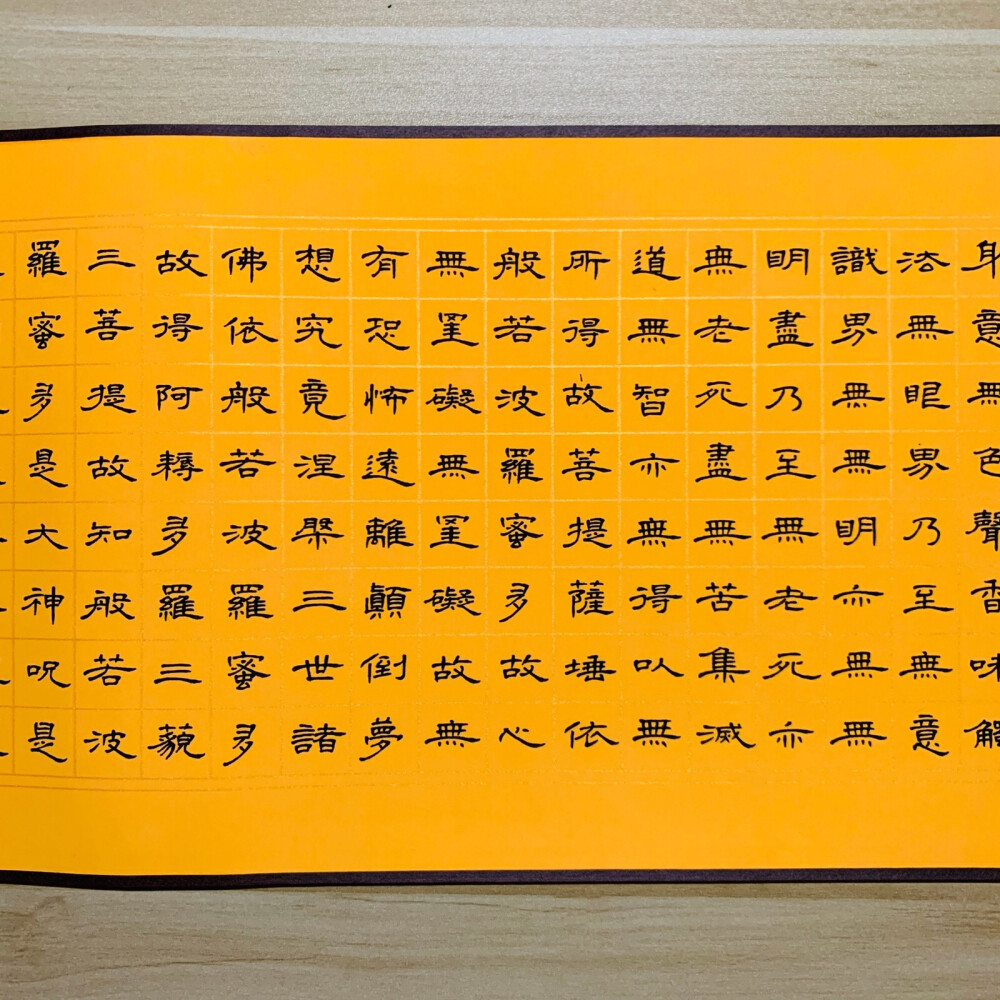 身意無色聲香味觸
法無眼界乃至無意
識界無無明亦無無
明盡乃至無老死亦
無老死盡無苦集滅
道無智亦無得以無
所得故菩提薩埵依
般若波羅蜜多故心
無罣礙無罣礙故無
有恐怖遠離顛倒夢
想究竟涅槃三世諸
佛依般若波羅蜜多
故得阿耨多羅三藐
三菩提故知般若波
羅蜜多是大神呪是